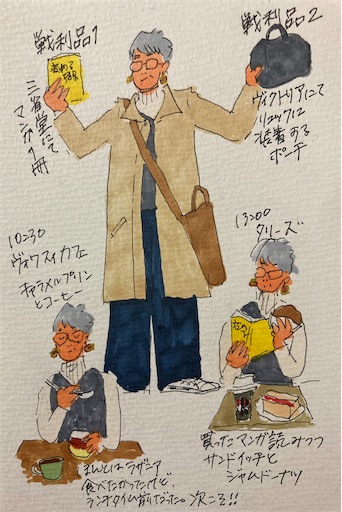 戦利品1
三省堂にて
マンガ1冊
戦利品2
ヴィクトリアにて
リュックに
装着する
ポーチ
10:30
ヴィワスイカフェ
キャラメルプリン
とコーヒー
13:00
タリーズ
ほんとはラザニア
食べたかったけど、
ランチタイム前だった。次こそ!!
買ったマンガ読みつつ
サンドイッチと
ジャムドーナツ